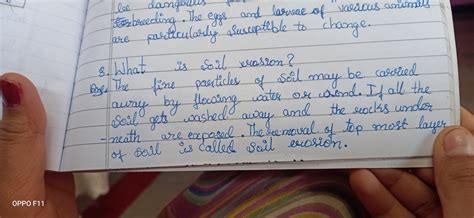 be dangerous
breeding. The eggs and larvae of various animals
are particularly susceptible to change.
8. What is soil erosion?
Ans. The fine particles of soil may be carried
away by flowing water or wind. If all the
soil gets washed away and the rocks under
-neath are exposed. The removal of top most layer
of soil is called soil erosion.
OPPO F11